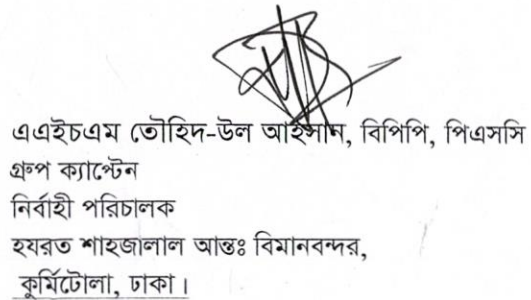 এএইচএম তৌহিদ-উল আহসান, বিপিপি, পিএসসি
গ্রুপ ক্যাপ্টেন
নির্বাহী পরিচালক
হযরত শাহজালাল আন্তঃ বিমানবন্দর,
কুর্মিটোলা, ঢাকা।